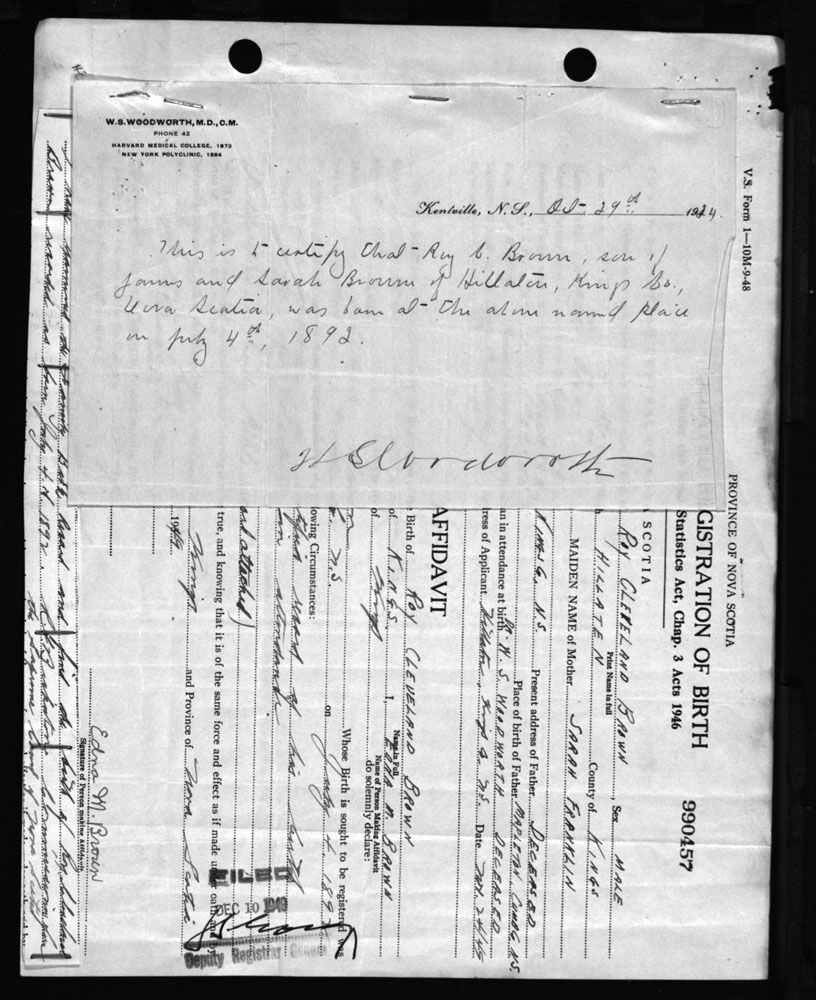 W.S.WOODWORTH, M.D., C.M.
PHONE 42
HARVARD MEDICAL COLLEGE, 1873
NEW YORK POLYCLINIC, 1884
Kentville, N.S., Oct 29th 1924
This is to certify that Roy C. Brown, son of
James and Sarah Brown of Hillaten, Kings Co.,
Nova Scotia, was born at the above named place
on July 4th, 1892.
W S Woodworth
V.S. Form 1—10M-9-48
PROVINCE OF NOVA SCOTIA
GISTRATION OF BIRTH
Statistics Act, Chap. 3 Acts 1946
990457
SCOTIA
ROY CLEVELAND BROWN, Sex MALE
Print Name in full
HILLATEN County of KINGS
MAIDEN NAME of Mother SARAH FRANKLIN
KINGS Co. N.S. Present address of Father DECEASED
Place of birth of Father MAPLETON, CUMB. N.S.
an in attendance at birth Dr. W. S. WOODWORTH DECEASED
ress of Applicant Hillaten Kings Co. N.S. Date Nov. 24/49
AFFIDAVIT
e Birth of ROY CLEVELAND BROWN
of KINGS I, EDNA M. BROWN
Name in Full
Name of Person Making Affidavit
of Kings do solemnly declare:
Whose Birth is sought to be registered was
N.S. on July 4, 189
owing Circumstances:
record of his birth
in attendance
attached)
true, and knowing that it is of the same force and effect as if made under oath and by
1949 Kings and Province of Nova Scotia
Edna M. Brown
Signature of Person making Affidavit
FILED
DEC 10 1949
Deputy Registrar General